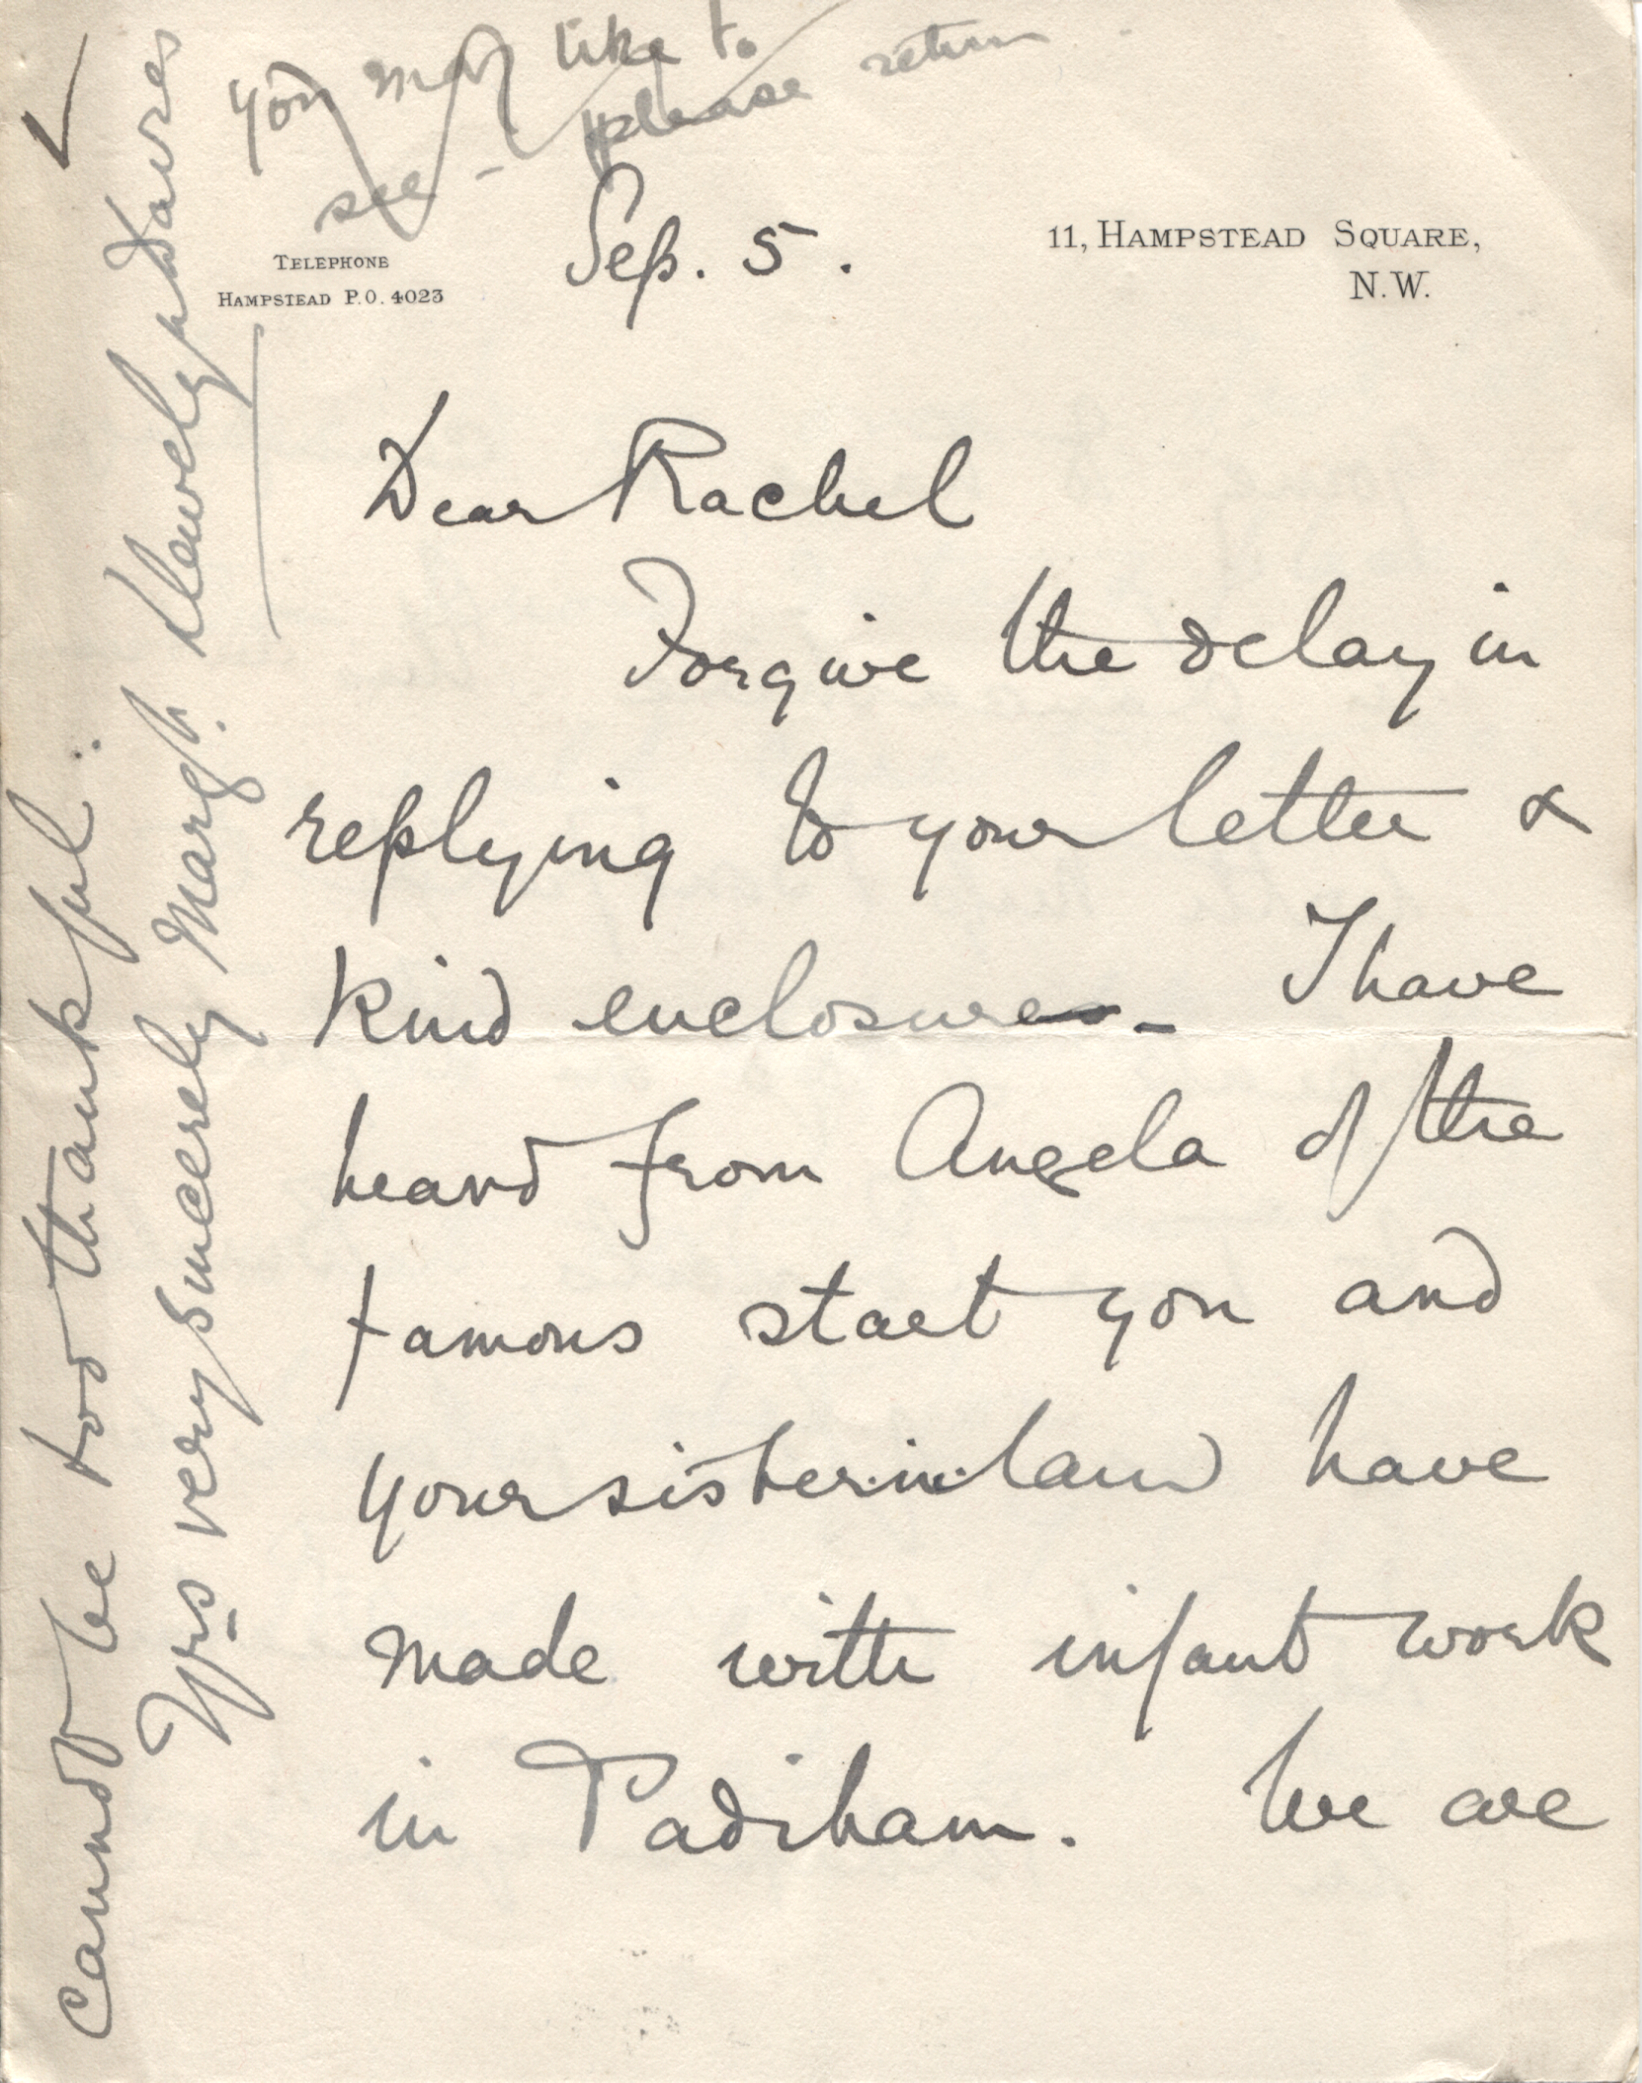 you may like to
see - please return
TELEPHONE
HAMPSTEAD P.O. 4023
Sep. 5.
11, HAMPSTEAD SQUARE,
N.W.
Dear Rachel
Forgive the delay in
replying to your letter &
kind enclosure - I have
heard from Angela of the
famous start you and
your sister-in-law have
made with infant work
in Padiham. We are
cannot be too thankful.
Yrs very sincerely Margt. Llewelyn Davies